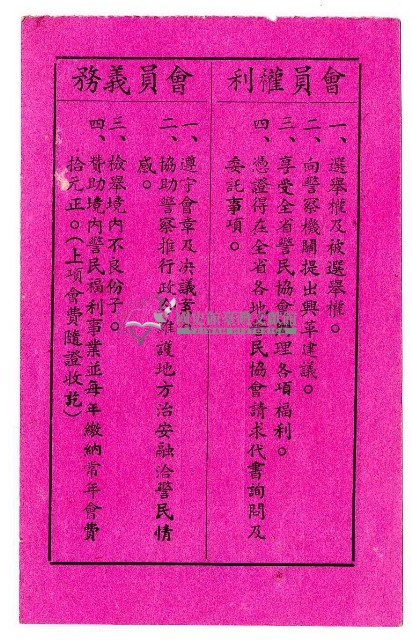 會員權利
一、選舉權及被選舉權。
二、向警察機關提出興革建議。
三、享受全省警民協會辦理各項福利。
四、憑證得在全省各地警民協會請求代書詢問及
委託事項。
會員義務
一、遵守會章及決議案
二、協助警察推行政 維護地方治安融洽警民情
感。
三、檢舉境內不良份子。
四、贊助境內警民福利事業並每年繳納常年會費
拾元正。(上項會費隨證收訖)
國史館臺灣文獻館